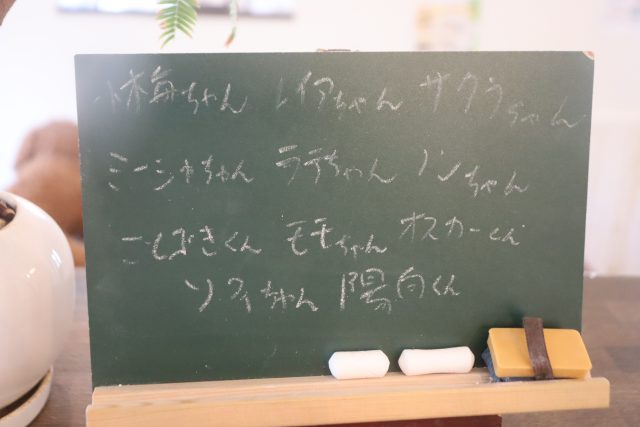 小梅ちゃん レイアちゃん サクラちゃん
ミーシャちゃん ラテちゃん ノンちゃん
こしばきくん モモちゃん オスカーくん
ソフィちゃん 陽向くん